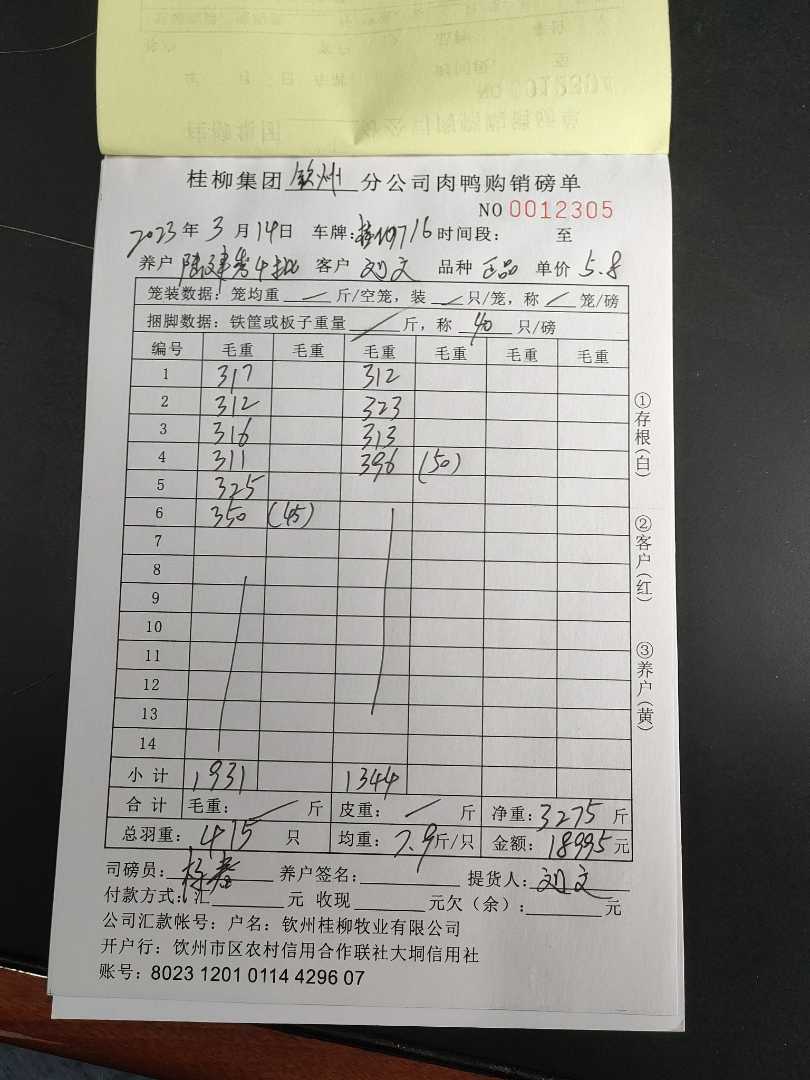 桂柳集团 钦州 分公司肉鸭购销磅单
NO 0012305
2023年3月14日 车牌: 716 时间段: 至
养户 客户 刘文 品种 正品 单价 5.8
笼装数据: 笼均重 / 斤/空笼, 装 / 只/笼, 称 / 笼/磅
捆脚数据: 铁筐或板子重量 / 斤, 称 40 只/磅
编号 毛重 毛重 毛重 毛重 毛重 毛重
1 317 312
2 312 323
3 316 313
4 311 396 (50)
5 325
6 350 (45)
7
8
9
10
11
12
13
14
小计 1931 1344
合计 毛重: / 斤 皮重: / 斤 净重: 3275 斤
总羽重: 415 只 均重: 7.9 斤/只 金额: 18995 元
司磅员: 养户签名: 提货人: 刘文
付款方式: 汇 元 收现 元欠(余): 元
公司汇款帐号: 户名: 钦州桂柳牧业有限公司
开户行: 钦州市区农村信用合作联社大垌信用社
账号: 8023 1201 0114 4296 07
①存根(白)
②客户(红)
③养户(黄)